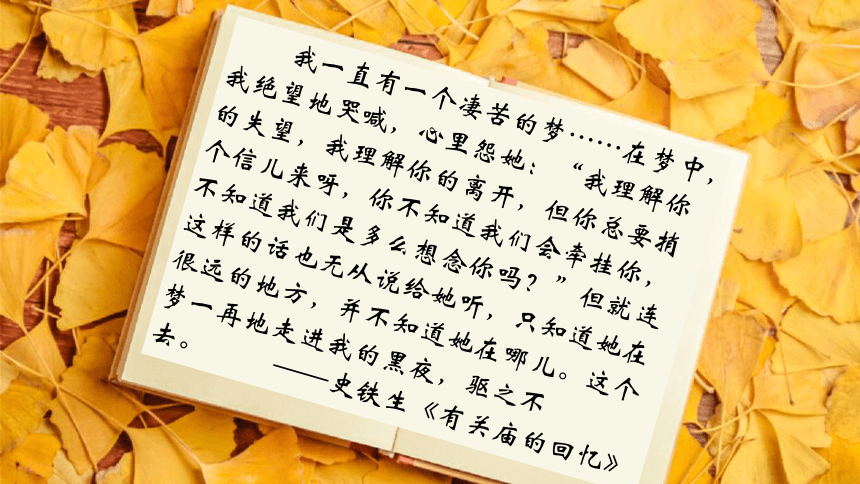 我一直有一个凄苦的梦……在梦中，
我绝望地哭喊，心里怨她：“我理解你
的失望，我理解你的离开，但你总要捎
个信儿来呀，你不知道我们会牵挂你，
不知道我们是多么想念你吗？”但就连
这样的话也无从说给她听，只知道她在
很远的地方，并不知道她在哪儿。这个
梦一再地走进我的黑夜，驱之不
去。
——史铁生《有关庙的回忆》